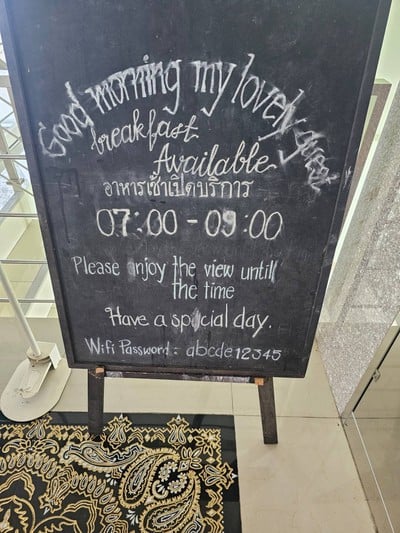 Good morning my lovely guest
breakfast
Available
อาหารเช้าเปิดบริการ
07:00 - 09:00
Please enjoy the view untill
the time
Have a spacial day.
Wifi Password : abcde12345